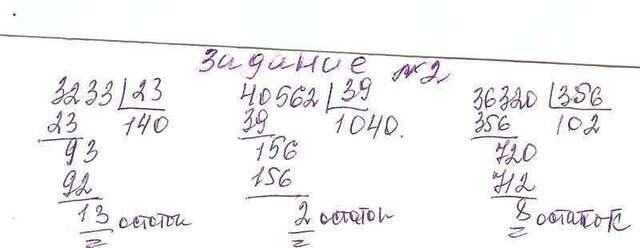 Задание №2
3233 | 23 40562 | 39 36320 | 356
23 140 39 1040. 356 102
93 156 720
92 156 712
13 остаток 2 остаток 8 остаток